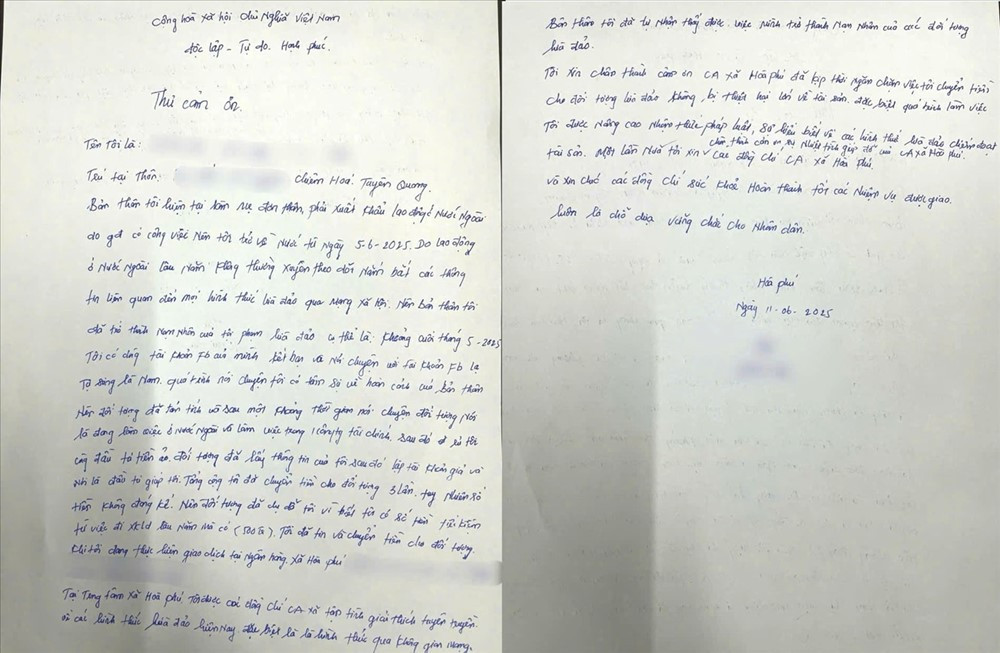 Cộng hoà xã hội chủ Nghĩa Việt Nam
độc lập - Tự do. Hạnh phúc.
Thư cảm ơn.
Tên Tôi là:
Trú tại Thôn. Chiêm Hoá, Tuyên Quang.
Bản thân tôi hiện tại làm mẹ đơn thân, phải xuất khẩu lao động ở Nước Ngoài
do gđ có công việc Nên tôi trở về Nước từ Ngày 5-6-2025. Do lao động
ở Nước Ngoài lâu Năm không thường xuyên theo dõi Nắm bắt các thông
tin liên quan đến mọi hình thức lừa đảo qua mạng xã hội. Nên bản thân tôi
đã trở thành Nạn Nhân của tội phạm lừa đảo cụ thể là: Khoảng cuối tháng 5-2025
Tôi có dùng tài khoản Fb của mình kết bạn và Nói chuyện với tài khoản Fb lạ
Tự xưng là Nam. quá trình nói chuyện tôi có tâm sự về hoàn cảnh của bản thân
Nên đối tượng đã tán tỉnh và sau một khoảng thời gian nói chuyện đối tượng Nói
là đang làm việc ở Nước Ngoài và làm việc trong 1 công ty tài chính, sau đó rủ tôi
cùng đầu tư tiền ảo. đối tượng đã lấy thông tin của tôi sau đó lập tài khoản giả và
nói là đầu tư giúp tôi. Tổng cộng tôi đã chuyển tiền cho đối tượng 3 lần. tuy nhiên số
tiền không đáng kể. Nên đối tượng đã dụ dỗ tôi vì biết tôi có số tiền tiết kiệm
từ việc đi XKLĐ lâu Năm mà có (500tr). Tôi đã tin và chuyển tiền cho đối tượng.
Khi tôi đang thực hiện giao dịch tại Ngân hàng, xã Hoà phú
Tại Trung tâm xã Hoà phú Tôi được các đồng chí CA xã tận tình giải thích tuyên truyền.
về các hình thức lừa đảo hiện nay đặc biệt là là hình thức qua không gian mạng.
Bản thân tôi đã tự Nhận thấy được. việc mình trở thành Nạn Nhân của các đối tượng
lừa đảo.
Tôi xin chân thành cảm ơn CA xã Hoà phú đã kịp thời ngăn chặn việc tôi chuyển tiền
cho đối tượng lừa đảo không, bị thiệt hại lớn về tài sản. đặc biệt quá trình làm việc
Tôi được Nâng cao Nhận thức pháp luật, sự hiểu biết về các hình thức lừa đảo chiếm đoạt
tài sản. Một lần Nữa tôi xin chân thành cảm ơn sự Nhiệt tình giúp đỡ của CA xã Hoà phú. Các đồng chí CA xã Hoà phú.
và xin chúc các đồng chí sức khoẻ Hoàn thành tốt các Nhiệm vụ được giao.
luôn là chỗ dựa vững chắc cho Nhân dân.
Hoà phú
Ngày 11-06-2025